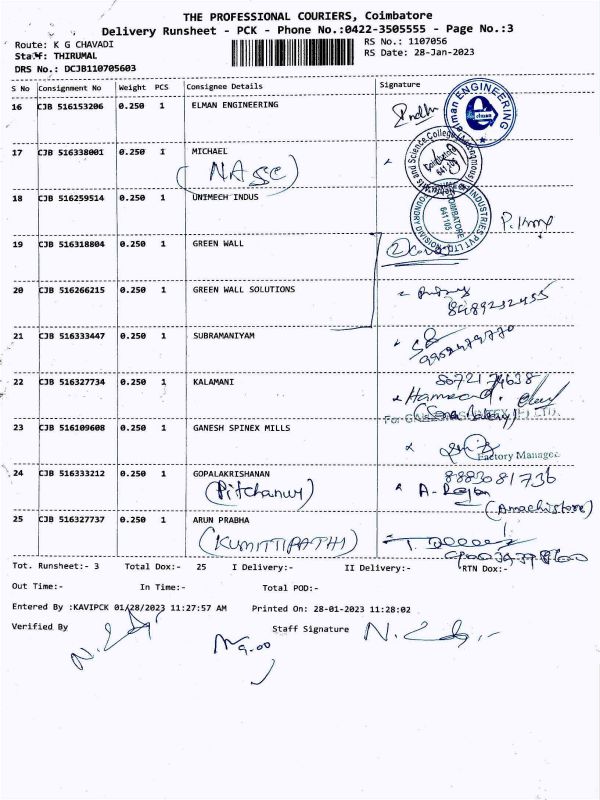 THE PROFESSIONAL COURIERS, Coimbatore
Delivery Runsheet - PCK - Phone No.:0422-3505555 - Page No.:3
Route: K G CHAVADI
RS No.: 1107056
Staff: THIRUMAL
RS Date: 28-Jan-2023
DRS No.: DCJB110705603
S No Consignment No Weight PCS Consignee Details Signature
16 CJB 516153206 0.250 1 ELMAN ENGINEERING
17 CJB 516338001 0.250 1 MICHAEL
(NASC)
18 CJB 516259514 0.250 1 UNIMECH INDUS
19 CJB 516318804 0.250 1 GREEN WALL
20 CJB 516266215 0.250 1 GREEN WALL SOLUTIONS
8489232455
21 CJB 516333447 0.250 1 SUBRAMANIYAM
9952479770
22 CJB 516327734 0.250 1 KALAMANI
23 CJB 516109608 0.250 1 GANESH SPINEX MILLS
Factory Manager
24 CJB 516333212 0.250 1 GOPALAKRISHANAN
(Pitchanur)
8883081736
A- Rajan
25 CJB 516327737 0.250 1 ARUN PRABHA
(KUMITTIPATHI)
Tot. Runsheet:- 3 Total Dox:- 25 I Delivery:- II Delivery:- RTN Dox:-
Out Time:- In Time:- Total POD:-
Entered By :KAVIPCK 01/28/2023 11:27:57 AM Printed On: 28-01-2023 11:28:02
Verified By Staff Signature